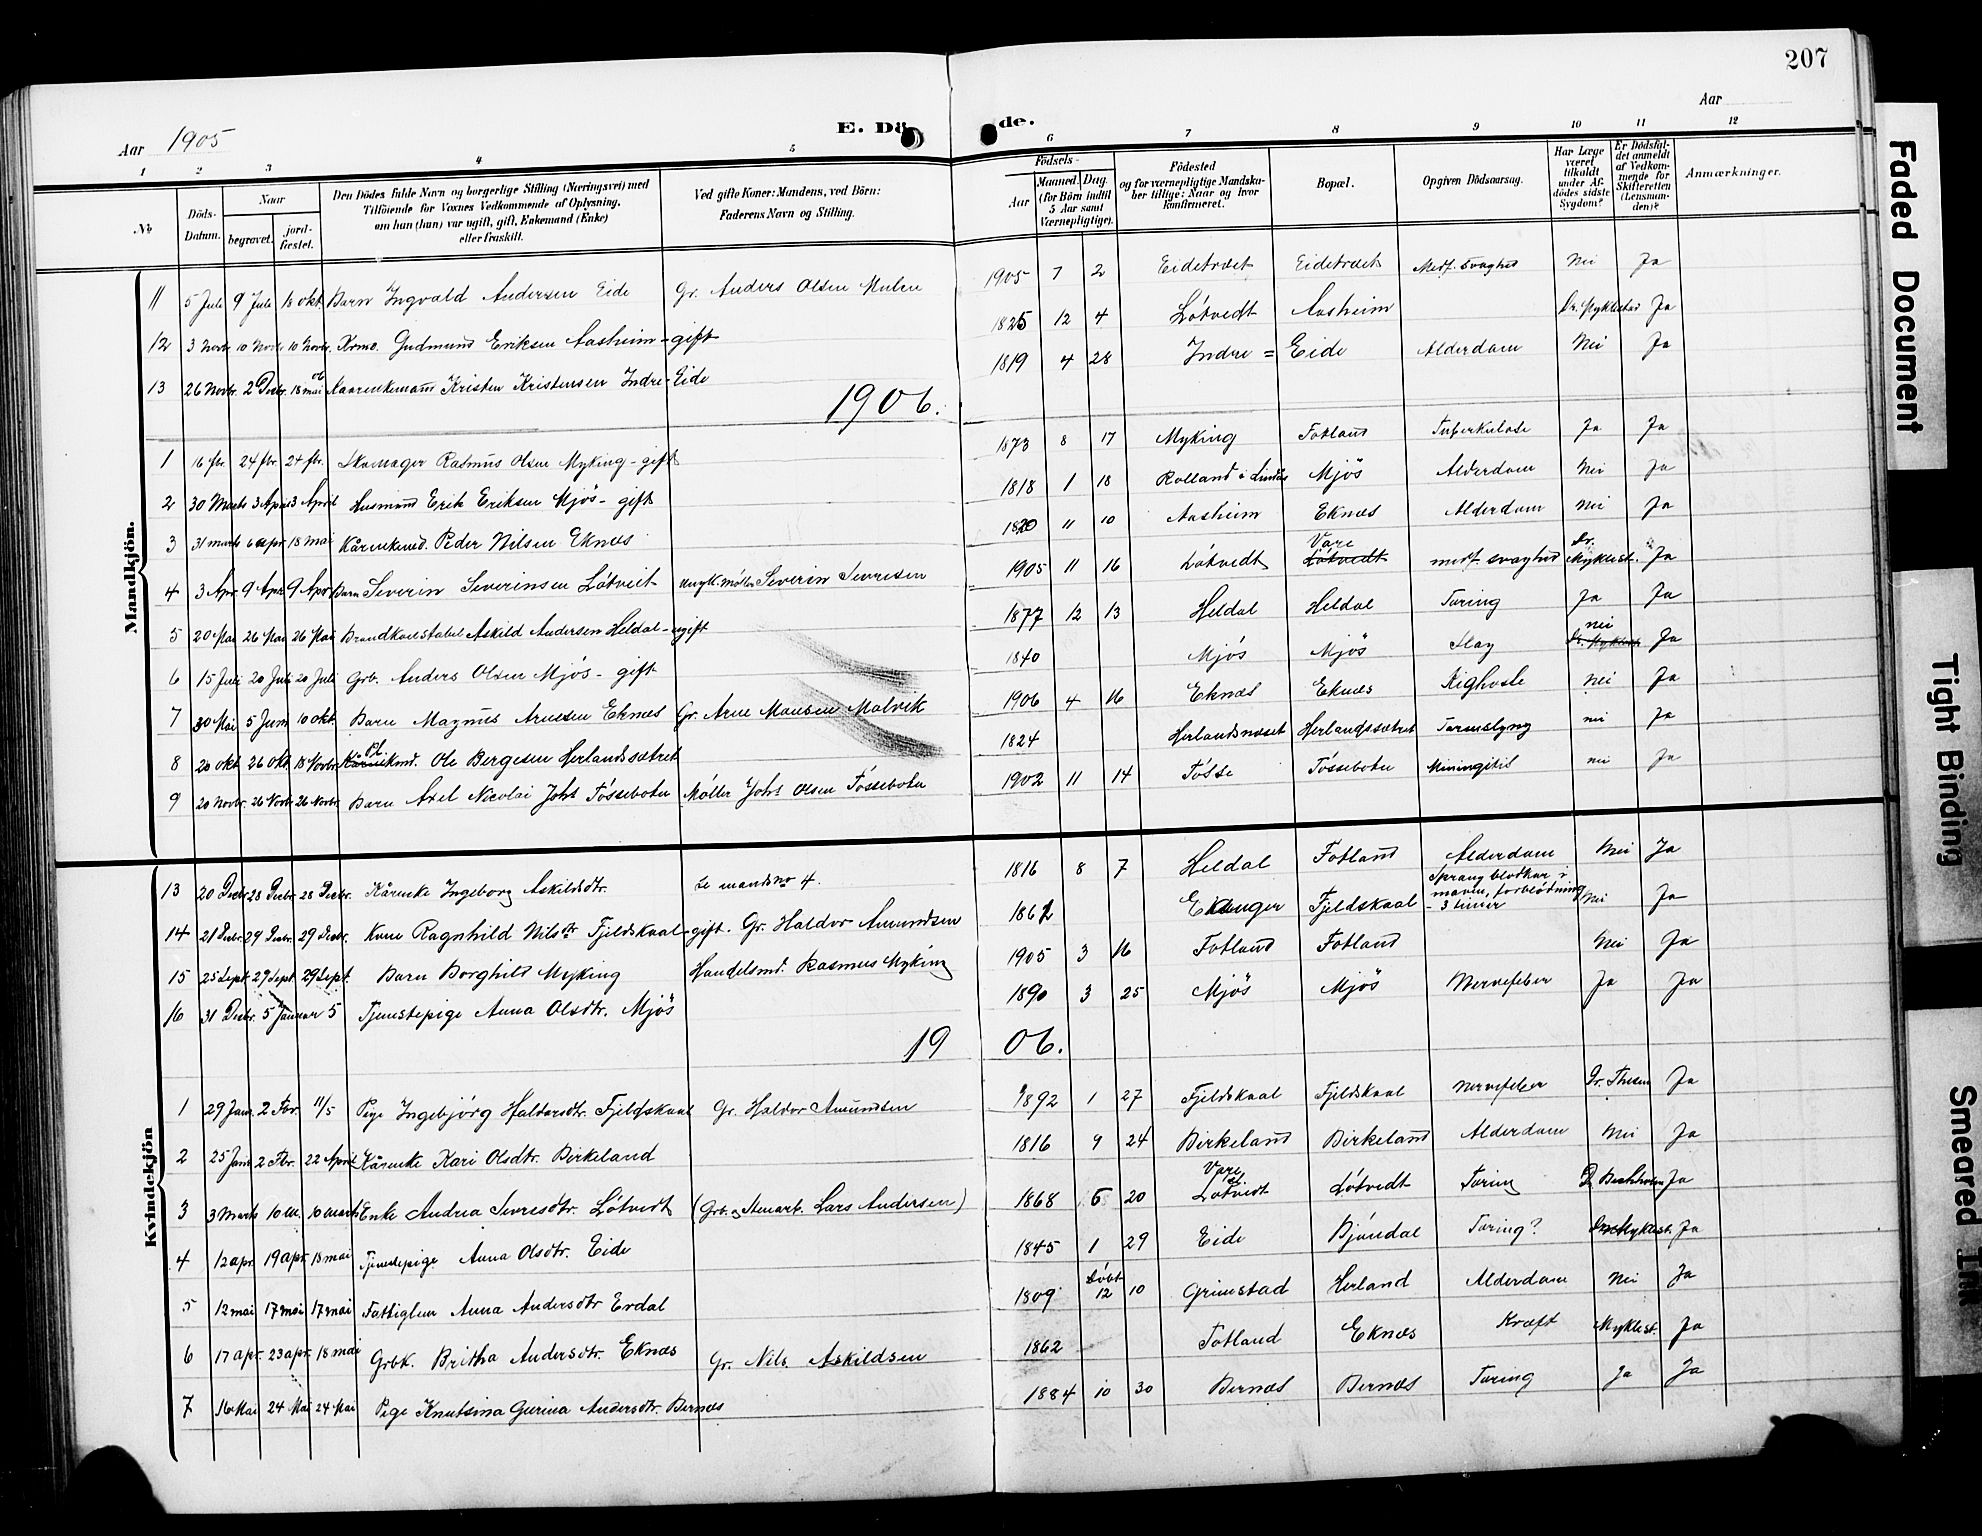 207
Aar 1905
E. Dö de.
Aar
1 2 3 4 5 6 7 8 9 10 11 12
No
Döds-Datum.
Naar
begravet.
jord-fæstet.
Den Dödes fulde Navn og borgerlige Stilling (Næringsvei) med
Tilföiende for Voxnes Vedkommende af Oplysning,
om han (hun) var ugift, gift, Enkemand (Enke)
eller fraskilt.
Ved gifte Koner: Mandens, ved Börn:
Faderens Navn og Stilling.
Födsels-
Aar
Maaned. Dag.
(for Börn indtil
5 Aar samt
Værnepligtige).
Födested
og for værnepligtige Mandska-
ber tillige: Naar og hvor
konfirmeret.
Bopæl.
Opgiven Dödsaarsag.
Har Læge
været
tilkaldt
under Af-
dödes sidste
Sygdom?
Er Dödsfal-
det anmeldt
af Vedkom-
mende for
Skifteretten
(Lensman-
den)?
Anmærkninger.
Mandkjön.
11 5 Juli 9 Juli 18 Okt. Barn Ingvald Andersen Eide Gr. Anders Olsen Mulen 1905 7 2 Eidetræet Eidetræet Medf. Svaghed Nei Ja
12 3 Novbr. 10 Novbr. 10 Novbr. Krmd. Gudmund Eriksen Aasheim - gift 1825 12 4 Lótvedt Aasheim Dr. Myklestad Ja
13 26 Novbr. 2 Decbr. 18 mai 06 Kaarenkemann Kristen Kristensen Indre-Eide 1819 4 28 Indre = Eide Alderdom Nei Ja
1906.
1 16 fbr. 24 fbr. 24 fbr. Skomager Rasmus Olsen Myking - gift 1873 8 17 Myking Totland Tuberkulose Ja Ja
2 30 Marts 3 April 3 April Husmand Erik Eriksen Mjös - gift 1818 1 18 Rolland i Lindås Mjös Alderdom Nei Ja
3 31 marts 6 apr. 18 mai Kårenkemd. Peder Nilsen Eknæs 1820 11 10 Aasheim Eknæs Alderdom Nei Ja
4 3 Apr. 9 Apr. 9 Apr. Barn Severin Severinsen Lótveit ungk. møller Severin Sevrisen 1905 11 16 Lótvedt Vare Lótvedt medf. svaghed Dr. Myklest. Ja
5 20 Mai 26 Mai 26 Mai Brandkonstabel Askild Andersen Heldal - ugift 1877 12 13 Heldal Heldal Tæring Ja Ja
6 15 Juli 20 Juli 20 Juli Grb. Anders Olsen Mjós - gift 1840 Mjós Mjós Slag nei Dr. Myklest. Ja
7 30 Mai 5 Juni 10 Okt. Barn Magnus Arnesen Eknes Gr. Arne Monsen Molvik 1906 4 16 Eknæs Eknæs Kighoste Nei Ja
8 20 Okt. 26 Okt. 18 Novbr. Pl. Kårenkmd. Ole Bergesen Herlandssætret 1824 Herlandsnæset Herlandssætret Tarmslyng nei Ja
9 20 Novbr. 26 Novbr. 26 Novbr. Barn Axel Nicolai Johs Fósseboten Møller Johs Olsen Fósseboten 1902 11 14 Fósse Fósseboten Miningitis nei Ja
Kvindekjön
13 20 Decbr. 28 Decbr. 28 Decbr. Kårenke Ingeborg Askildsdtr. Se mandsno 4. 1816 8 7 Heldal Totland Alderdom Nei Ja
14 21 Decbr. 29 Decbr. 29 Decbr. Kone Ragnhild Nilsdtr Fjeldskaal - gift. Gr. Haldor Amundsen 1862 Eikanger Fjeldskaal Sprang blodkar i maven, forblødning - 3 timer Nei Ja
15 25 Sept. 29 Sept. 29 Sept. Barn Borghild Myking Handelsmd. Rasmus Myking 1905 3 16 Totland Totland Nei Ja
16 31 Decbr. 5 Januar 5 Tjenstepige Anna Olsdtr. Mjös 1890 3 25 Mjös Mjös Nervefeber Ja Ja
1906.
1 29 Jan. 2 Fbr. 11/5 Pige Ingebjörg Haldorsdtr. Fjeldskaal Gr. Haldor Amundsen 1892 1 27 Fjeldskaal Fjeldskaal Nervefeber Dr. Thesen Ja
2 25 Jan. 2 Fbr. 22 April Kårenke Kari Olsdtr. Birkeland 1816 9 24 Birkeland Birkeland Alderdom Nei Ja
3 3 Marts 10 m. 10 marts Enke Andrea Sevresdtr. Lótvedt (Grb. & Stenarb. Lars Andersen) 1868 6 20 Vare Lótvedt Lótvedt Tæring Ja
4 12 apr. 19 apr. 18 mai Tjenstepige Anna Olsdtr. Eide 1845 1 29 Eide Bjóndal Tæring? Dr. Myklest. Ja
5 12 mai 17 mai 17 mai Fattiglem Anna Andersdtr Erdal 1809 Dóbt 12 10 Grimstad Herland Alderdom Nei Ja
6 17 apr. 23 apr. 18 mai Grbk. Britha Andersdtr. Eknæs Gr. Nils Askildsen 1862 Totland Eknæs Kræft Myklest. Ja
7 16 Mai 24 Mai 24 Mai Pige Knutsina Gurina Andersdtr. Bernæs 1884 10 30 Bernæs Bernæs Tæring Ja Ja
Faded Document
Tight Binding
Smeared Ink